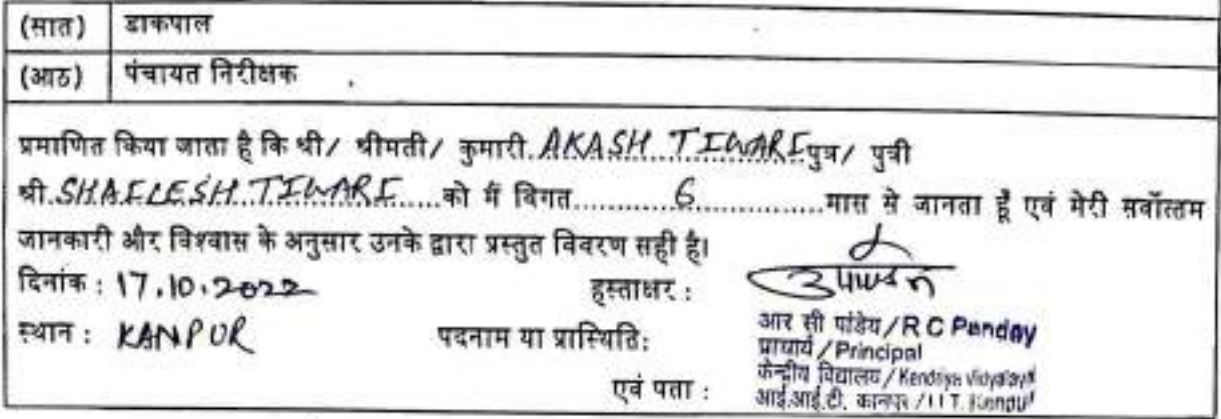 (सात) डाकपाल
(आठ) पंचायत निरीक्षक
प्रमाणित किया जाता है कि श्री/ श्रीमती/ कुमारी AKASH TIWARI पुत्र/ पुत्री
श्री SHAILESH TIWARI को मैं विगत 6 मास से जानता हूँ एवं मेरी सर्वोत्तम
जानकारी और विश्वास के अनुसार उनके द्वारा प्रस्तुत विवरण सही है।
दिनांक : 17.10.2022 हस्ताक्षर :
स्थान : KANPUR पदनाम या प्रास्थिति:
आर सी पांडेय/R C Pandey
प्राचार्य/Principal
केन्द्रीय विद्यालय/Kendriya Vidyalaya
एवं पता :
आई.आई.टी. कानपुर/I I T. Kanpur